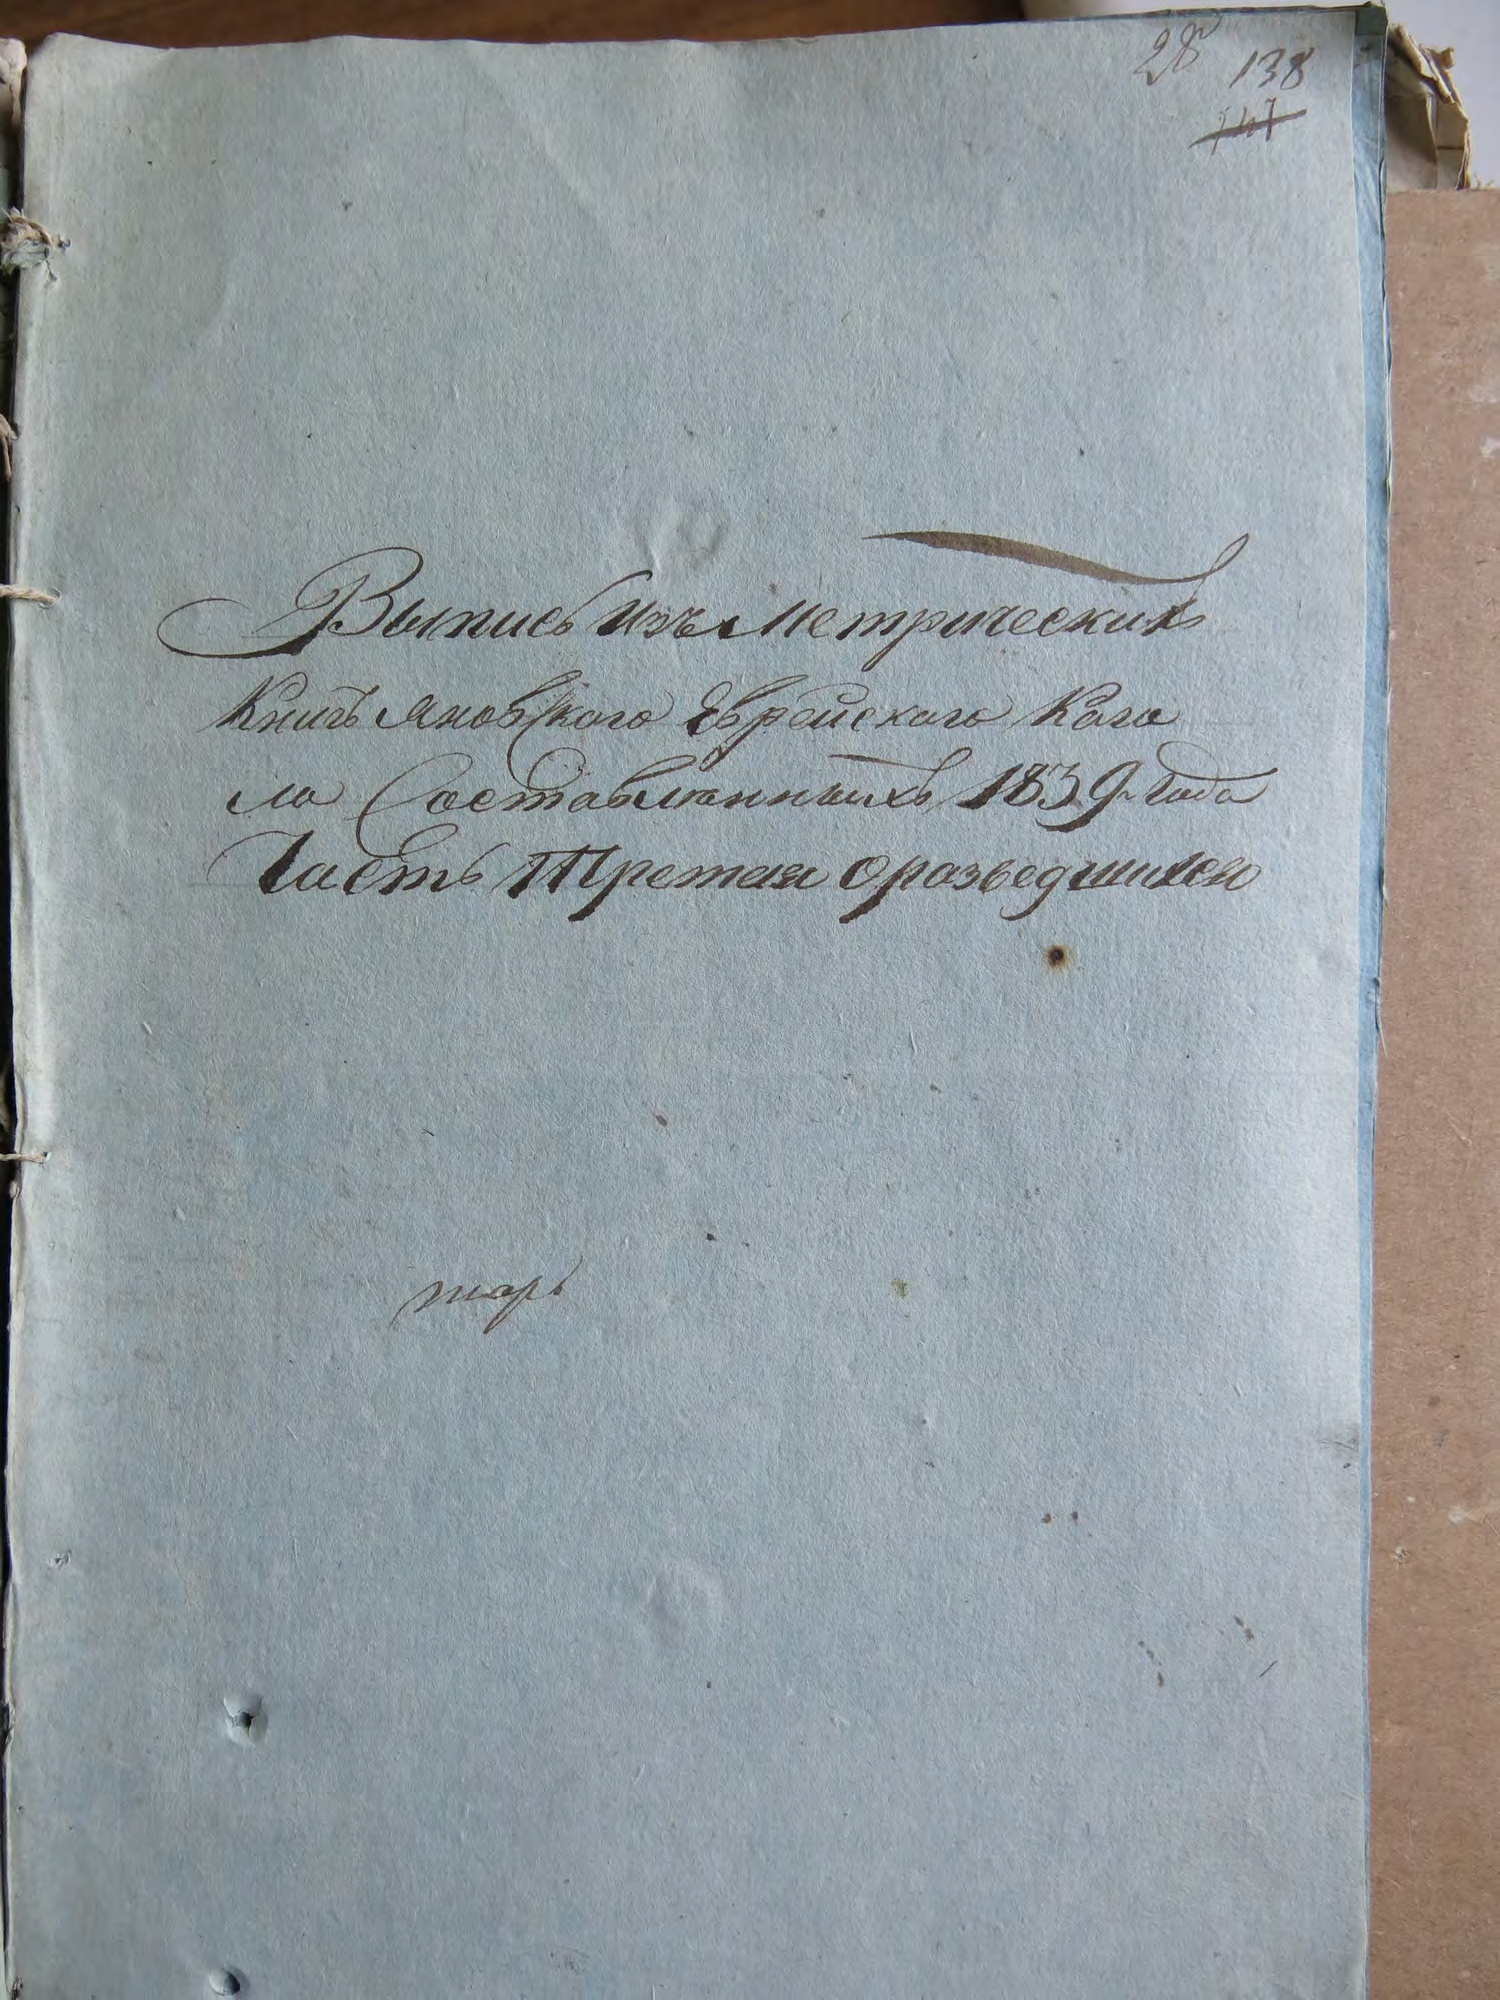 28 138
141
Выпись изъ метрическихъ
Книгъ Яновского Еврейского Кага
ла Составленныхъ 1839 Года
Часть Третая оразведшихся
тарь